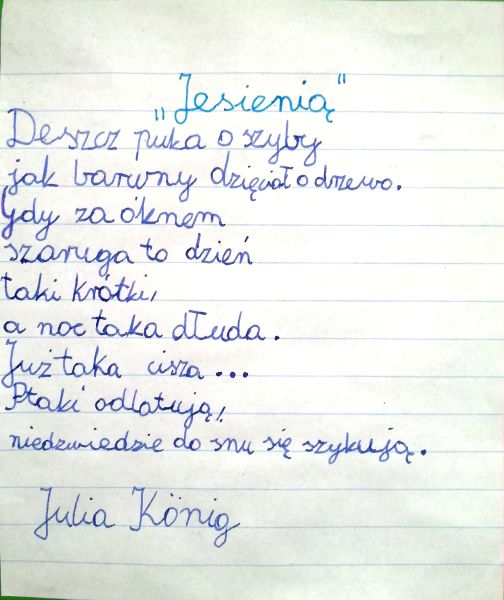 „Jesienią"
Deszcz puka o szyby
jak barwny dzięciał o drzewo.
Gdy za oknem
szaruga to dzień
taki krótki,
a noc taka dłuda.
Już taka cisza...
Ptaki odlatują,
niedzwiedzie do snu się szykują.
Julia König